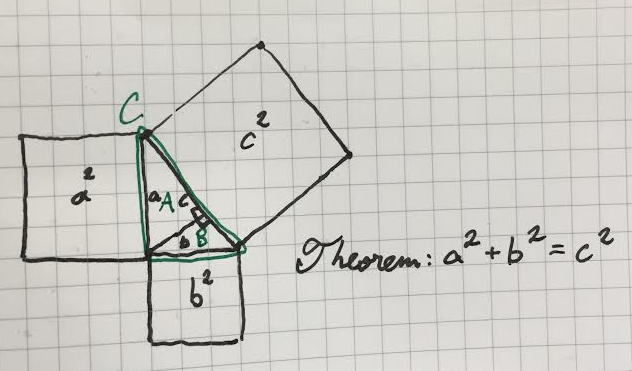 C
c²
a²
a A c
b B
b²
Theorem: a² + b² = c²